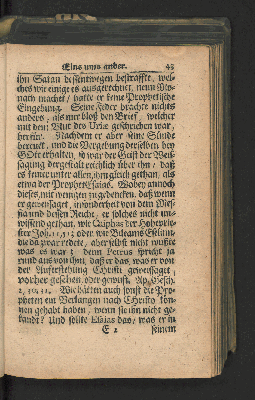 Eins ums ander. 43
ihn Satan dessentwegen bestraffte, wel-
ches wie einige es ausgerechnet, neun Mo-
nath machet / hatte er keine Prophetische
Eingebung. Seine Feder brachte nichts
anders, als nur bloß den Brief, welcher
mit dem Blut des Uriæ geschrieben war,
herfür. Nachdem er aber seine Sünde
bereuet, und die Vergebung derselben bey
GOtt erhalten, so war der Geist der Weis-
sagung dergestalt reichlich über ihm, daß
es keiner unter allen, ihm gleich gethan, als
etwa der Prophet Esaias. Wobey annoch
dieses, mit wenigen zugedencken, daß wenn
er geweissaget, insonderheit von dem Mes-
sia und dessen Reiche, er solches nicht un-
wissend gethan, wie Caiphas der Hohepriester
Joh. 11, 51; oder wie Bileams Eselinn,
die da zwar redete, aber selbst nicht wuste
was es war; denn Petrus spricht ja
rund aus von ihm, daß er das, was er von
der Aufferstehung Christi geweissaget,
vorher gesehen oder gewust, Ap. Gesch.
2, 30, 31. Wie hätten auch sonst die Pro-
pheten ein Verlangen nach Christo kön-
nen gehabt haben, wenn sie ihn nicht ge-
kandt? Und sollte Esaias das, was er in
E 2 seinem